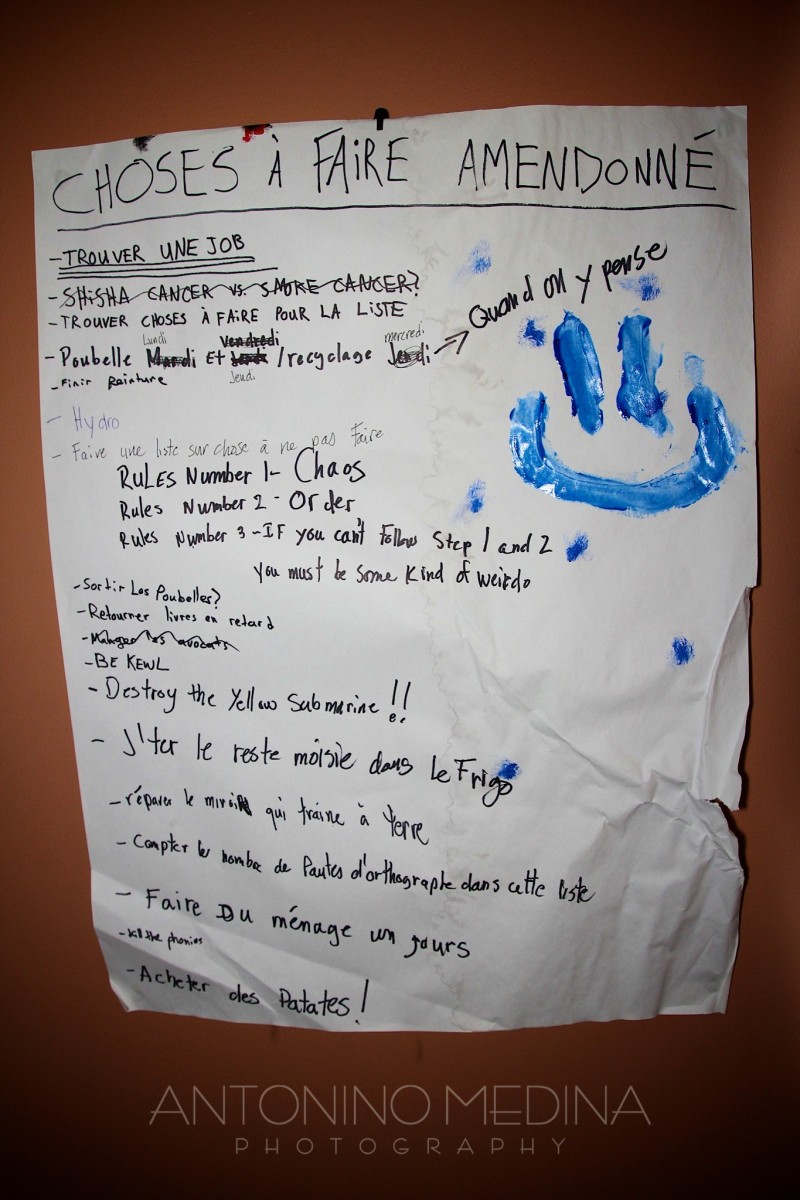 CHOSES À FAIRE AMENDONNÉ
- TROUVER UNE JOB
- SHISHA CANCER VS. SMOKE CANCER?
- TROUVER CHOSES À FAIRE POUR LA LISTE
Lundi Vendredi mercredi
- Poubelle Mardi ET Jeudi / recyclage Jeudi → Quand on y pense
Jeudi
- Finir Peinture
- Hydro
- Faire une liste sur chose à ne pas Faire
RULES Number 1- Chaos
Rules Number 2 - Order
Rules Number 3 - IF you can't Follow Step 1 and 2
You must be some Kind of weirdo
- Sortir Les Poubelles?
- Retourner livres en retard
- Manger les avocats
- BE KEWL
- Destroy the Yellow Submarine !!
- J'ter le reste moisie dans le Frigo
- réparer le miroir qui traine à Terre
- Compter le nombre de fautes d'orthographe dans cette liste
- Faire Du ménage un jours
- Kill the phonies
- Acheter des Patates!
ANTONINO MEDINA
PHOTOGRAPHY